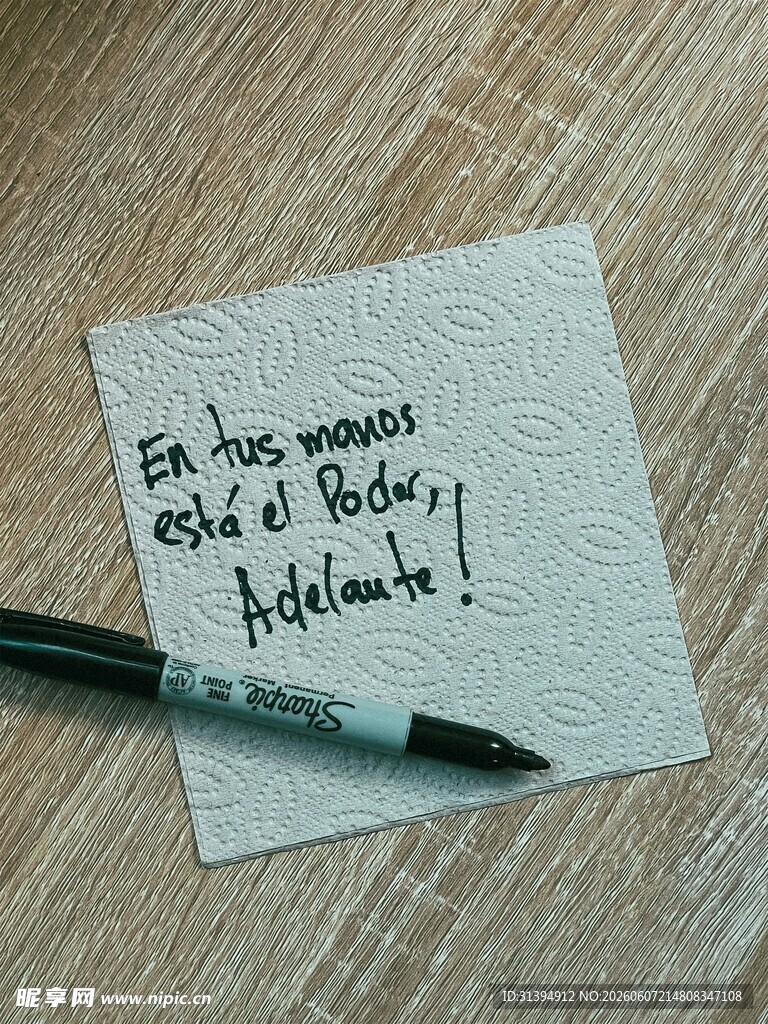 En tus manos
está el Poder,
Adelante!
Sharpie®
Permanent Marker
FINE
POINT
AP
昵享网 www.nipic.cn
ID:31394912 NO:20260607214808347108